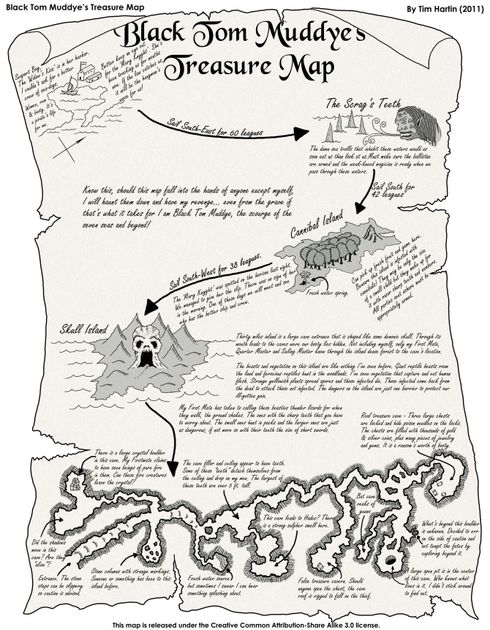 Black Tom Muddye's Treasure Map
By Tim Hartin (2011)
Black Tom Muddye's
Treasure Map
Serpent Bay,
The Widow's Kiss' is in her harbor.
I couldn't ask for a better
crew of seadogs.
Women, rum
& booty. It's a
pirate's life
for me.
Better keep an eye out
for the 'Mary Knyght'. She's
been tracking us for months
now. If she
it will be the hangman's
noose for us!
Sail South-East for 60 leagues
The Scrag's Teeth
The damn sea trolls that inhabit these waters would as
soon eat us then look at us. Must make sure the ballistas
are armed and the weak-kneed magician is ready when we
pass through these waters.
Sail South for
42 leagues
Know this, should this map fall into the hands of anyone except myself,
I will haunt them down and have my revenge... even from the grave if
that's what it takes for I am Black Tom Muddye, the scourge of the
seven seas and beyond!
Cannibal Island
Can pick up fresh fruit and game here.
Beware this island is infested with
cannibals! They may be only the size
of a small child but they make up for
it with razor sharp teeth and numbers.
All parties sent ashore must be
appropriately armed.
Fresh water spring.
Sail South-West for 38 leagues.
The 'Mary Knyght' was spotted on the horizon last night.
We managed to give her the slip. There was no sign of her
in the morning. One of these days we will meet and see
who has the better ship and crew.
Skull Island
Thirty miles inland is a large cave entrance that is shaped like some demonic skull. Through its
mouth leads to the caves were our booty lies hidden. Not including myself, only my First Mate,
Quarter Master and Sailing Master know through the island down forest to the cave's location.
The beasts and vegetation on this island are like nothing I've seen before. Giant reptile beasts roam
the land and ferocious reptiles hunt in the woodlands. I've seen vegetation that capture and eat human
flesh. Strange yellowish plants spread spores and those infected die. Those infected come back from
the dead to attack those not infected. The dangers on the island are just one barrier to protect our
ill-gotten gain.
My First Mate has taken to calling these beasties thunder lizards for when
they walk, the ground shakes. The ones with the sharp teeth that you have
to worry about. The small ones hunt in packs and the larger ones are just
as dangerous, if not more so with their teeth the size of short swords.
Real treasure cave - Three large chests
are locked and hide poison needles in the locks.
The chests are filled with thousands of gold
& silver coins, plus many pieces of jewelry
and gems. It is a ransom's worth of booty.
There is a large crystal boulder
in this cave. My Fortunate claims
to have seen beings of pure fire
in them. Can these fire creatures
leave the crystal?
The cave floor and ceiling appear to have teeth.
Some of these "teeth" detach themselves from
the ceiling and drop in my men. The largest of
these teeth are over 5 ft. tall.
This cave leads to Hades? There
is a strong sulphur smell here.
Bat cave
reeks of
guano.
What's beyond this boulder
is unknown. Decided to err
on the side of caution and
not tempt the fates by
exploring beyond it.
Did the
shadows
move in this
cave? Are they
"alive"?
Entrance. The stone
steps can be slippery
so caution is advised.
Stone columns with strange markings.
Someone or something has been to this
island before.
Fresh water source
but sometimes I swear I can hear
something splashing about.
False treasure cavern. Should
anyone open the chest, the cave
roof is rigged to fall on the thief.
A large open pit is in the center
of this cave. Who knows what
lives in it. I didn't stick around
to find out.
This map is released under the Creative Commons Attribution-Share Alike 3.0 license.